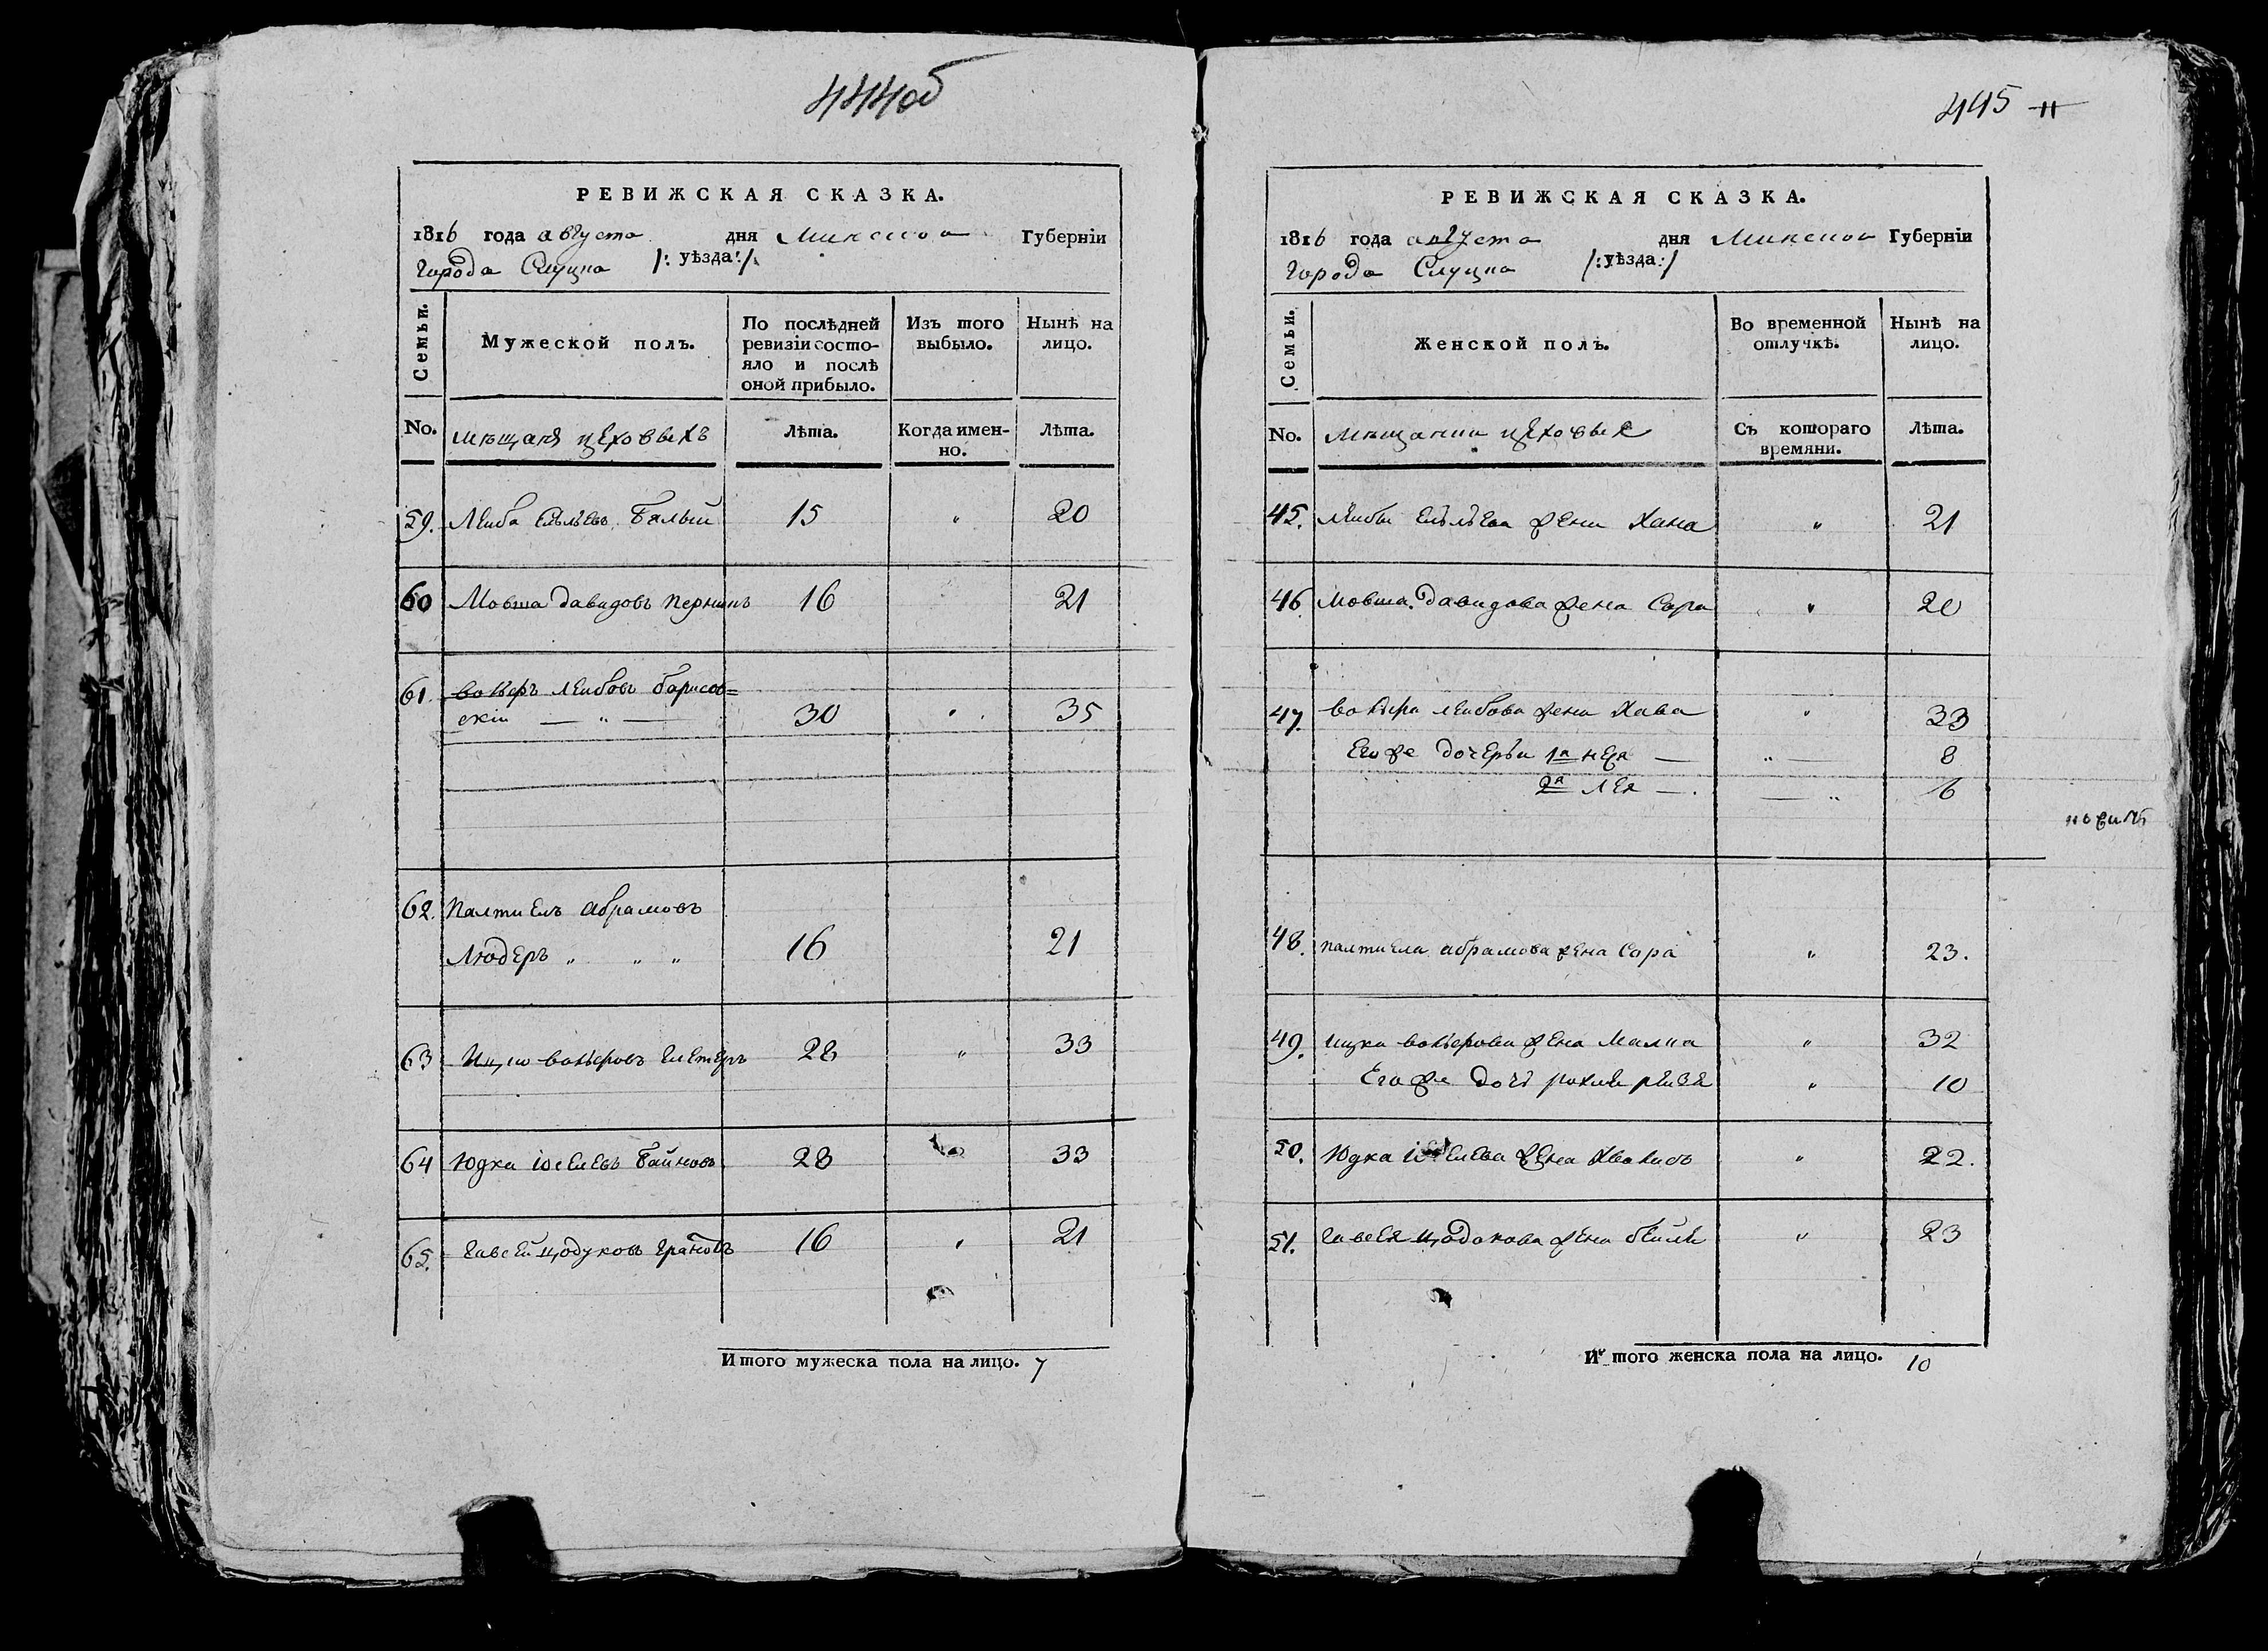 444об
РЕВИЖСКАЯ СКАЗКА.
1816 года августа дня Минской Губерніи
города Слуцка /: уѣзда :/
Семьи.
Мужеской полъ.
По послѣдней ревизіи состояло и послѣ оной прибыло.
Изъ того выбыло.
Нынѣ на лицо.
No. мѣщаня цеховыхъ Лѣта. Когда именно. Лѣта.
59. Лейба Елѣевъ Бялый 15 " 20
60 Мовша Давидовъ 16 21
61. Вольфъ Лейбовъ Барисов=
скій — " — 30 " 35
62. Палтиелъ Абрамовъ
Людеръ " " " 16 21
63 Ицко Вольфовъ 28 " 33
64 Юдка Іоселевъ 28 33
65. Евсей Цодуковъ 16 " 21
Итого мужеска пола на лицо. 7
445
РЕВИЖСКАЯ СКАЗКА.
1816 года августа дня Минской Губерніи
города Слуцка /: уѣзда :/
Семьи.
Женской полъ.
Во временной отлучкѣ.
Нынѣ на лицо.
No. мѣщанки цеховые Съ котораго времяни. Лѣта.
45. Лейбы жена Хана " 21
46 Мовша Давидова жена Сора " 20
47. Вольфа Лейбова жена Хава " 33
Его же дочерьи 1я — " — 8
2я Лея — . — " 6
48. Палтиела Абрамова жена Сора " 23.
49. Ицка Вольфова жена Малка " 32
Его же дочь " 10
50. Юдка Іоселева жена " 22.
51. Евсея Цодокова жена Бейля " 23
Итого женска пола на лицо. 10